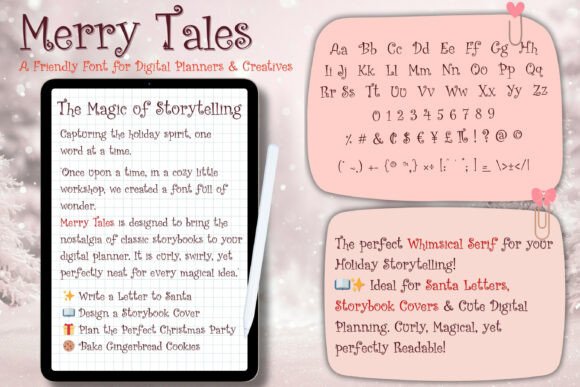 Merry Tales
A Friendly Font for Digital Planners & Creatives
The Magic of Storytelling
Capturing the holiday spirit, one
word at a time.
'Once upon a time, in a cozy little
workshop, we created a font full of
wonder.
Merry Tales is designed to bring the
nostalgia of classic storybooks to your
digital planner. It is curly, swirly, yet
perfectly neat for every magical idea.'
✨ Write a Letter to Santa
📖 Design a Storybook Cover
🎁 Plan the Perfect Christmas Party
🍪 'Bake Gingerbread Cookies
Aa Bb Cc Dd Ee Ff Gg Hh
Ii Jj Kk Ll Mm Nn Oo Pp Qq
Rr Ss Tt Uu Vv Ww Xx Yy Zz
0 1 2 3 4 5 6 7 8 9
The perfect 'Whimsical Serif' for your
Holiday Storytelling!
📖✨ Ideal for Santa Letters,
Storybook Covers & Cute Digital
Planning. Curly, Magical, yet
perfectly Readable!